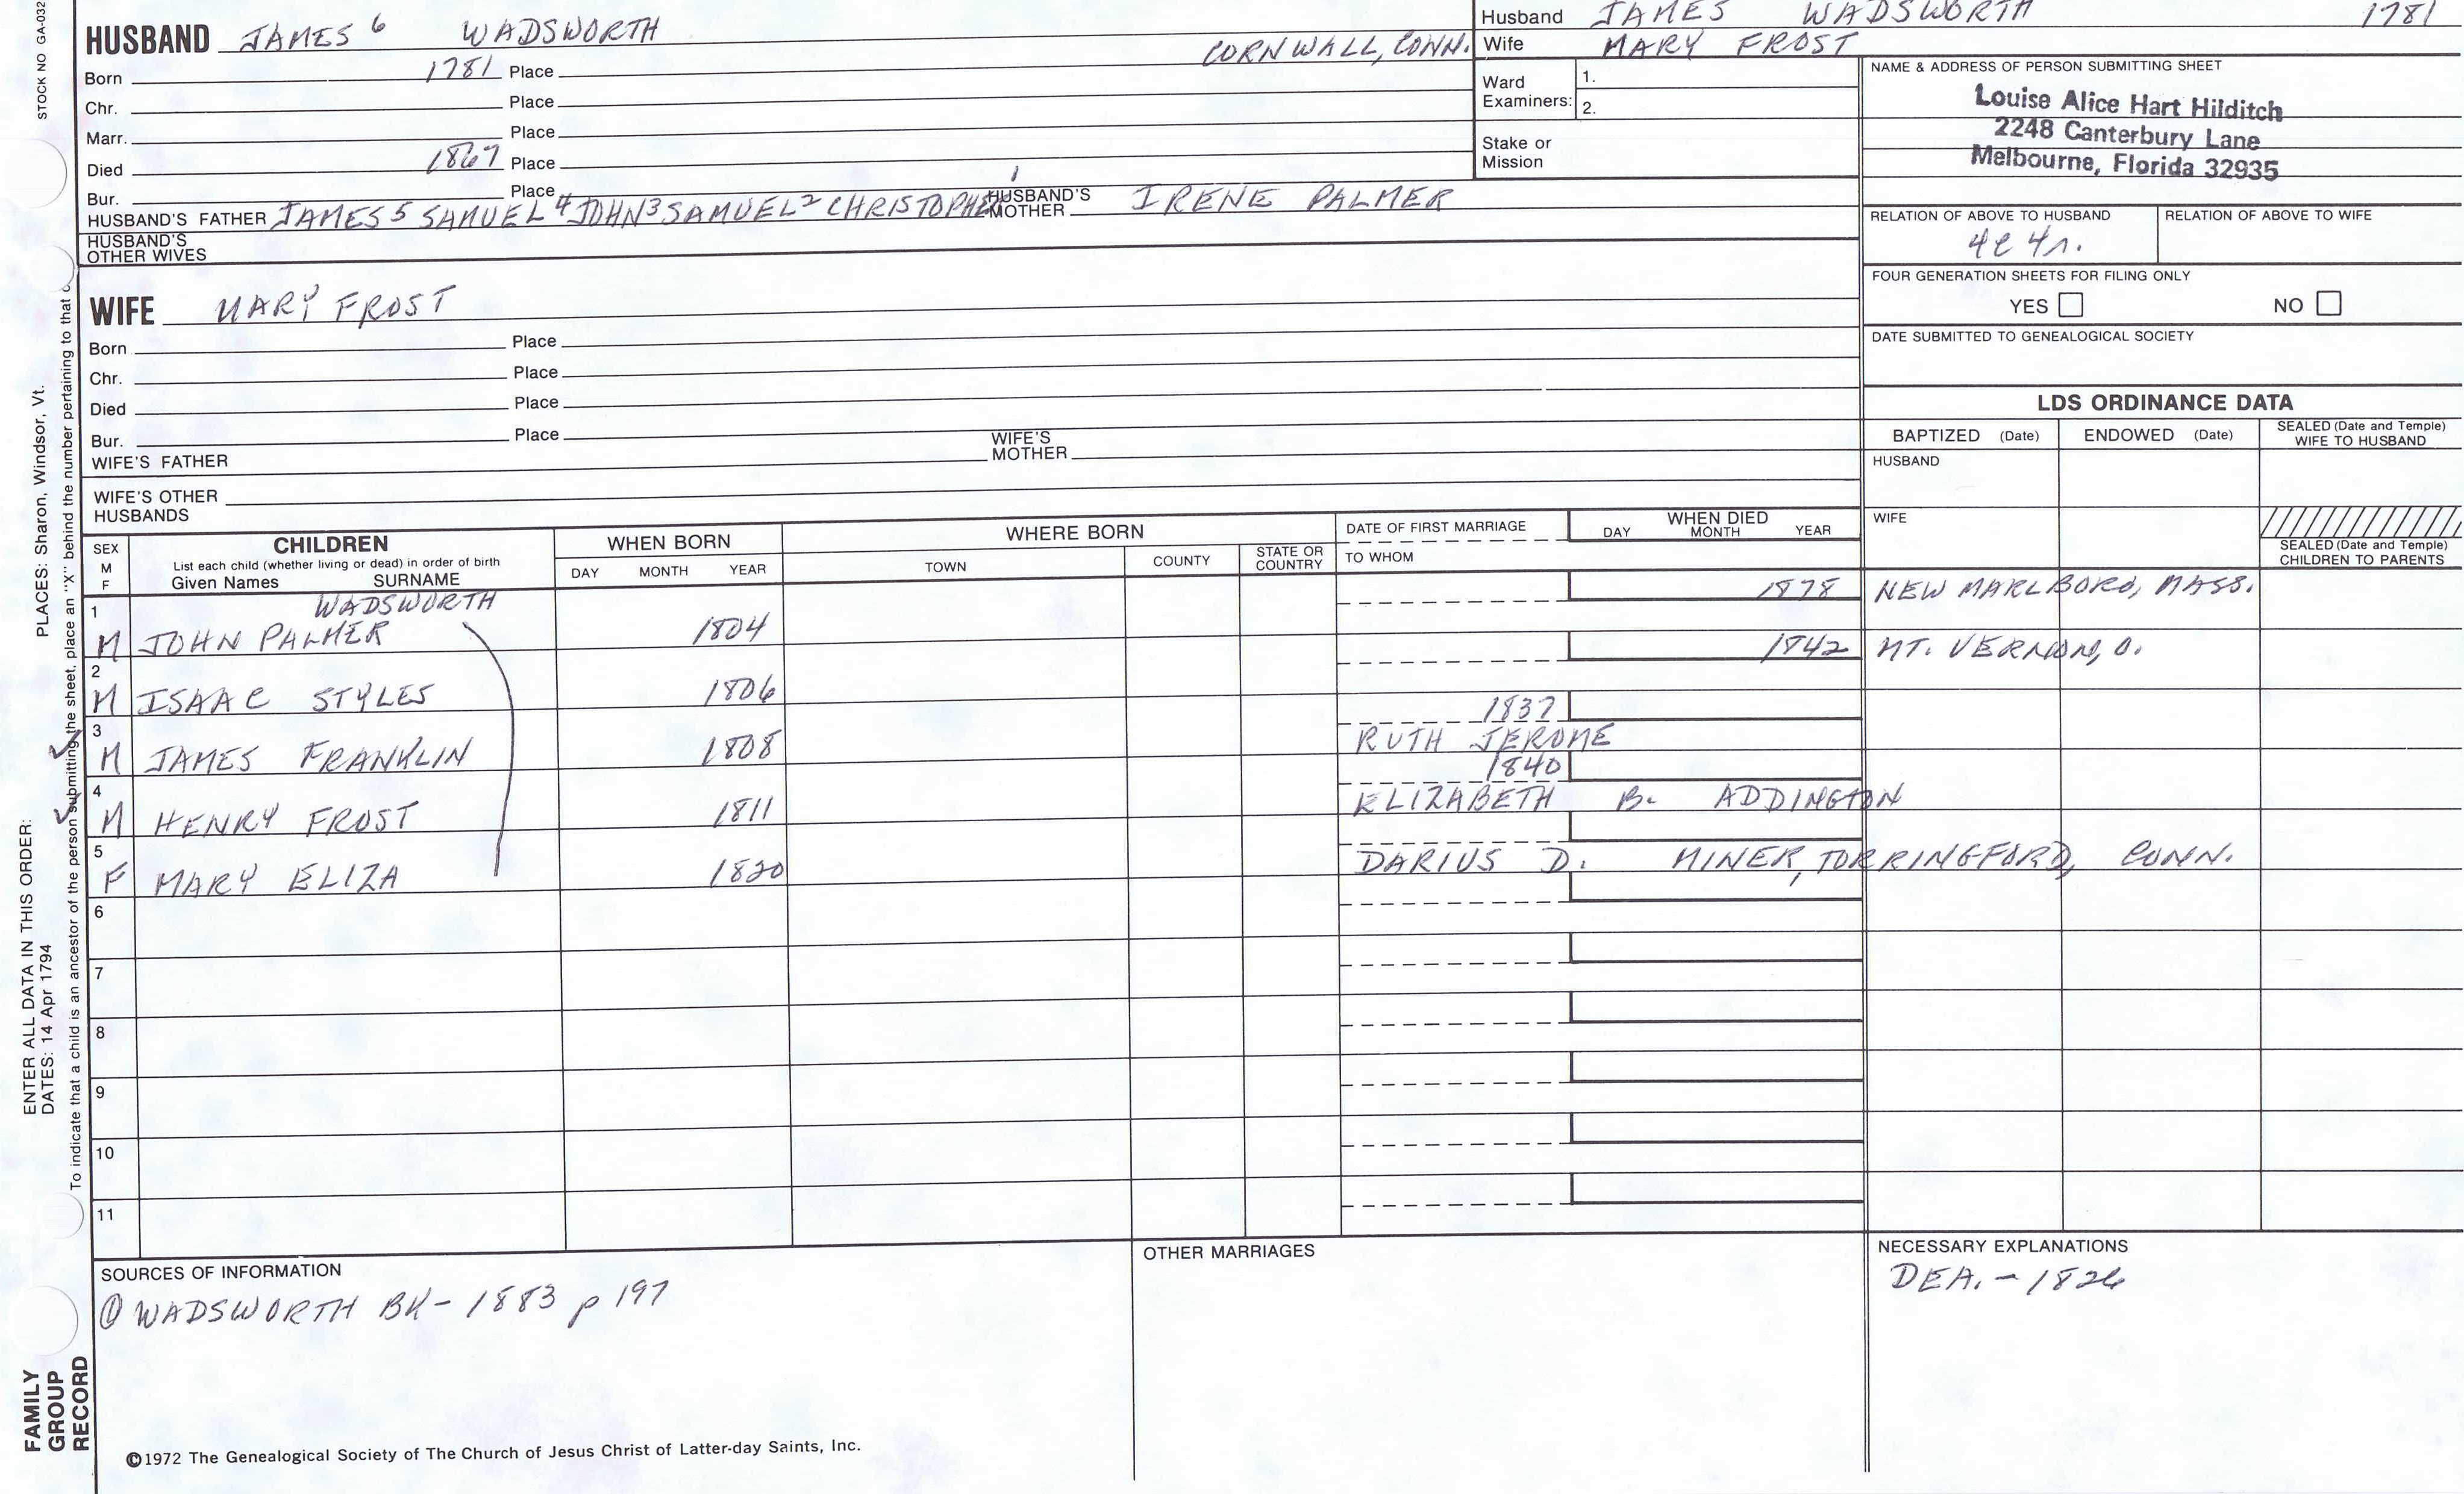 STOCK NO GA-032
HUSBAND JAMES 6 WADSWORTH
Born 1781 Place CORNWALL, CONN.
Chr. Place
Marr. Place
Died 1867 Place
Bur. Place
HUSBAND'S FATHER JAMES 5 SAMUEL 4 JOHN 3 SAMUEL 2 CHRISTOPHER 1 HUSBAND'S MOTHER IRENE PALMER
HUSBAND'S OTHER WIVES
WIFE MARY FROST
Born Place
Chr. Place
Died Place
Bur. Place
WIFE'S FATHER WIFE'S MOTHER
WIFE'S OTHER HUSBANDS
Husband JAMES WADSWORTH 1781
Wife MARY FROST
Ward Examiners: 1.
2.
Stake or Mission
NAME & ADDRESS OF PERSON SUBMITTING SHEET
Louise Alice Hart Hilditch
2248 Canterbury Lane
Melbourne, Florida 32935
RELATION OF ABOVE TO HUSBAND RELATION OF ABOVE TO WIFE
4c 4r.
FOUR GENERATION SHEETS FOR FILING ONLY
YES NO
DATE SUBMITTED TO GENEALOGICAL SOCIETY
LDS ORDINANCE DATA
BAPTIZED (Date) ENDOWED (Date) SEALED (Date and Temple) WIFE TO HUSBAND
HUSBAND
WIFE
SEALED (Date and Temple) CHILDREN TO PARENTS
SEX M F
CHILDREN
List each child (whether living or dead) in order of birth
Given Names SURNAME
WHEN BORN
DAY MONTH YEAR
WHERE BORN
TOWN COUNTY STATE OR COUNTRY
DATE OF FIRST MARRIAGE
TO WHOM
WHEN DIED
DAY MONTH YEAR
WADSWORTH
1 M JOHN PALMER 1804 1878 NEW MARLBORO, MASS.
2 M ISAAC STYLES 1806 1842 MT. VERNON, O.
3 M JAMES FRANKLIN 1808 1837
RUTH JEROME
4 M HENRY FROST 1811 1840
ELIZABETH B. ADDINGTON
5 F MARY ELIZA 1820 DARIUS D. MINER, TORRINGFORD, CONN.
6
7
8
9
10
11
SOURCES OF INFORMATION
① WADSWORTH BK - 1883 p 197
OTHER MARRIAGES
NECESSARY EXPLANATIONS
DEA. - 1826
©1972 The Genealogical Society of The Church of Jesus Christ of Latter-day Saints, Inc.
FAMILY
GROUP
RECORD
ENTER ALL DATA IN THIS ORDER:
DATES: 14 Apr 1794 PLACES: Sharon, Windsor, Vt.
To indicate that a child is an ancestor of the person submitting the sheet, place an "X" behind the number pertaining to that